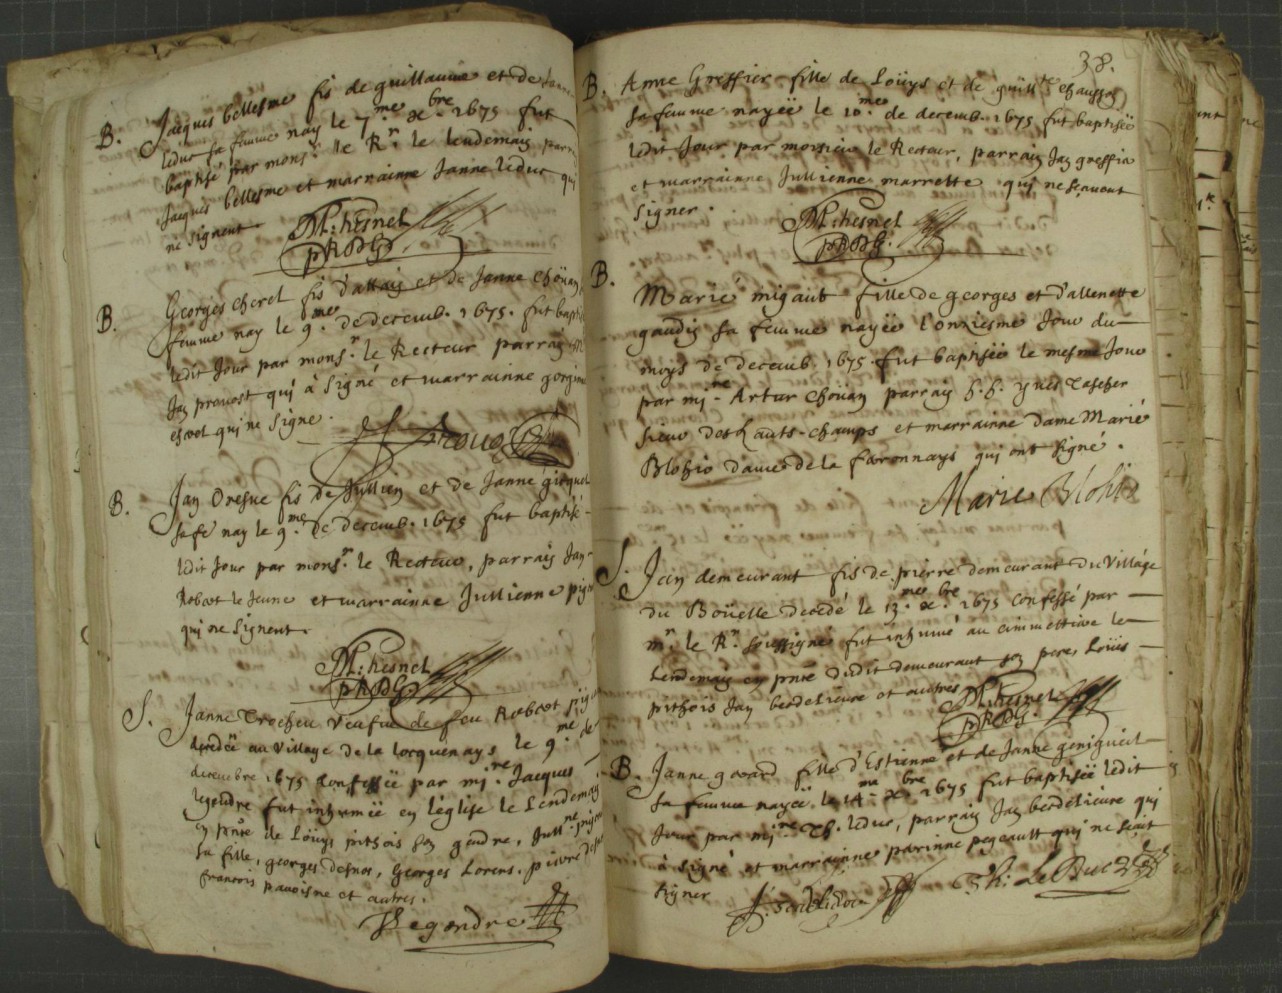 B. Jacques bellesme fis de guillaume et de Janne
leduc sa femme nay le 7.me xbre 1675 fut
baptisé par mons.r le R.r le lendemain parrain
Jacques bellesme et marrainne Janne leduc qui
ne signent
M: hesnel
B. Georges cherel fis d'allain et de Janne Choüan
femme nay le 9.me de decemb. 1675. fut bapti
ledit Jour par mons.r le Recteur parrain
Jan provost qui à signé et marrainne
qui ne signe.
B. Jan Oresne fis de Jullien et de Janne
sa fe nay le 9.me de decemb. 1675 fut baptisé
ledit Jour par mons.r le Recteur, parrain Jan
Robert le Jeune et marrainne Jullienne
qui ne signent.
M: hesnel
S. Janne Trocheu veufue de feu Robert
decedëe au village de la Lorquenays le 9.me de
decembre 1675 confessëe par mi.re Jacques
legendre fut inhumëe en l'église le lendemain
en pnce de Löuys pithois son gendre, Jull.ne
sa fille, georges desnos, Georges Lorens, pierre
francois pauoisne et autres.
Legendre
38.
B. Anne Greffier fille de Loüys et de guill.te
sa femme nayëe le 10.me de decemb. 1675 fut baptisëe
ledit Jour par monsieur le Recteur, parrain Jan greffier
et marrainne Jullienne marrette qui ne sçavent
signer.
M: hesnel
B. Marie migaut fille de georges et d'allenette
gaudin sa femme nayëe l'onziesme Jour du
moys de decemb. 1675 fut baptisëe le mesme Jour
par mi.re Artur Choüan parrain h. h. Yues Tascher
sieur des hauts-champs et marrainne dame Marie
Blohio dame de la faronnays qui ont signé.
Marie Blohio
S. Jan demeurant fis de pierre demeurant du village
du Boüelle decedé le 13.me xbre 1675 confessé par
m.r le R.r soussigné fut inhumé au cimmettiere le
lendemain en pnce dudit demeurant son pere, Loüis
pithois Jan berdelieure et autres
M: hesnel
B. Janne gerard fille d'Estienne et de Janne
sa femme nayëe le 14.me xbre 1675 fut baptisëe ledit
Jour par mi.re Th. leduc, parrain Jan berdelieure qui
à signé et marrainne perinne pegeault qui ne sçait
signer
Th: Le Duc